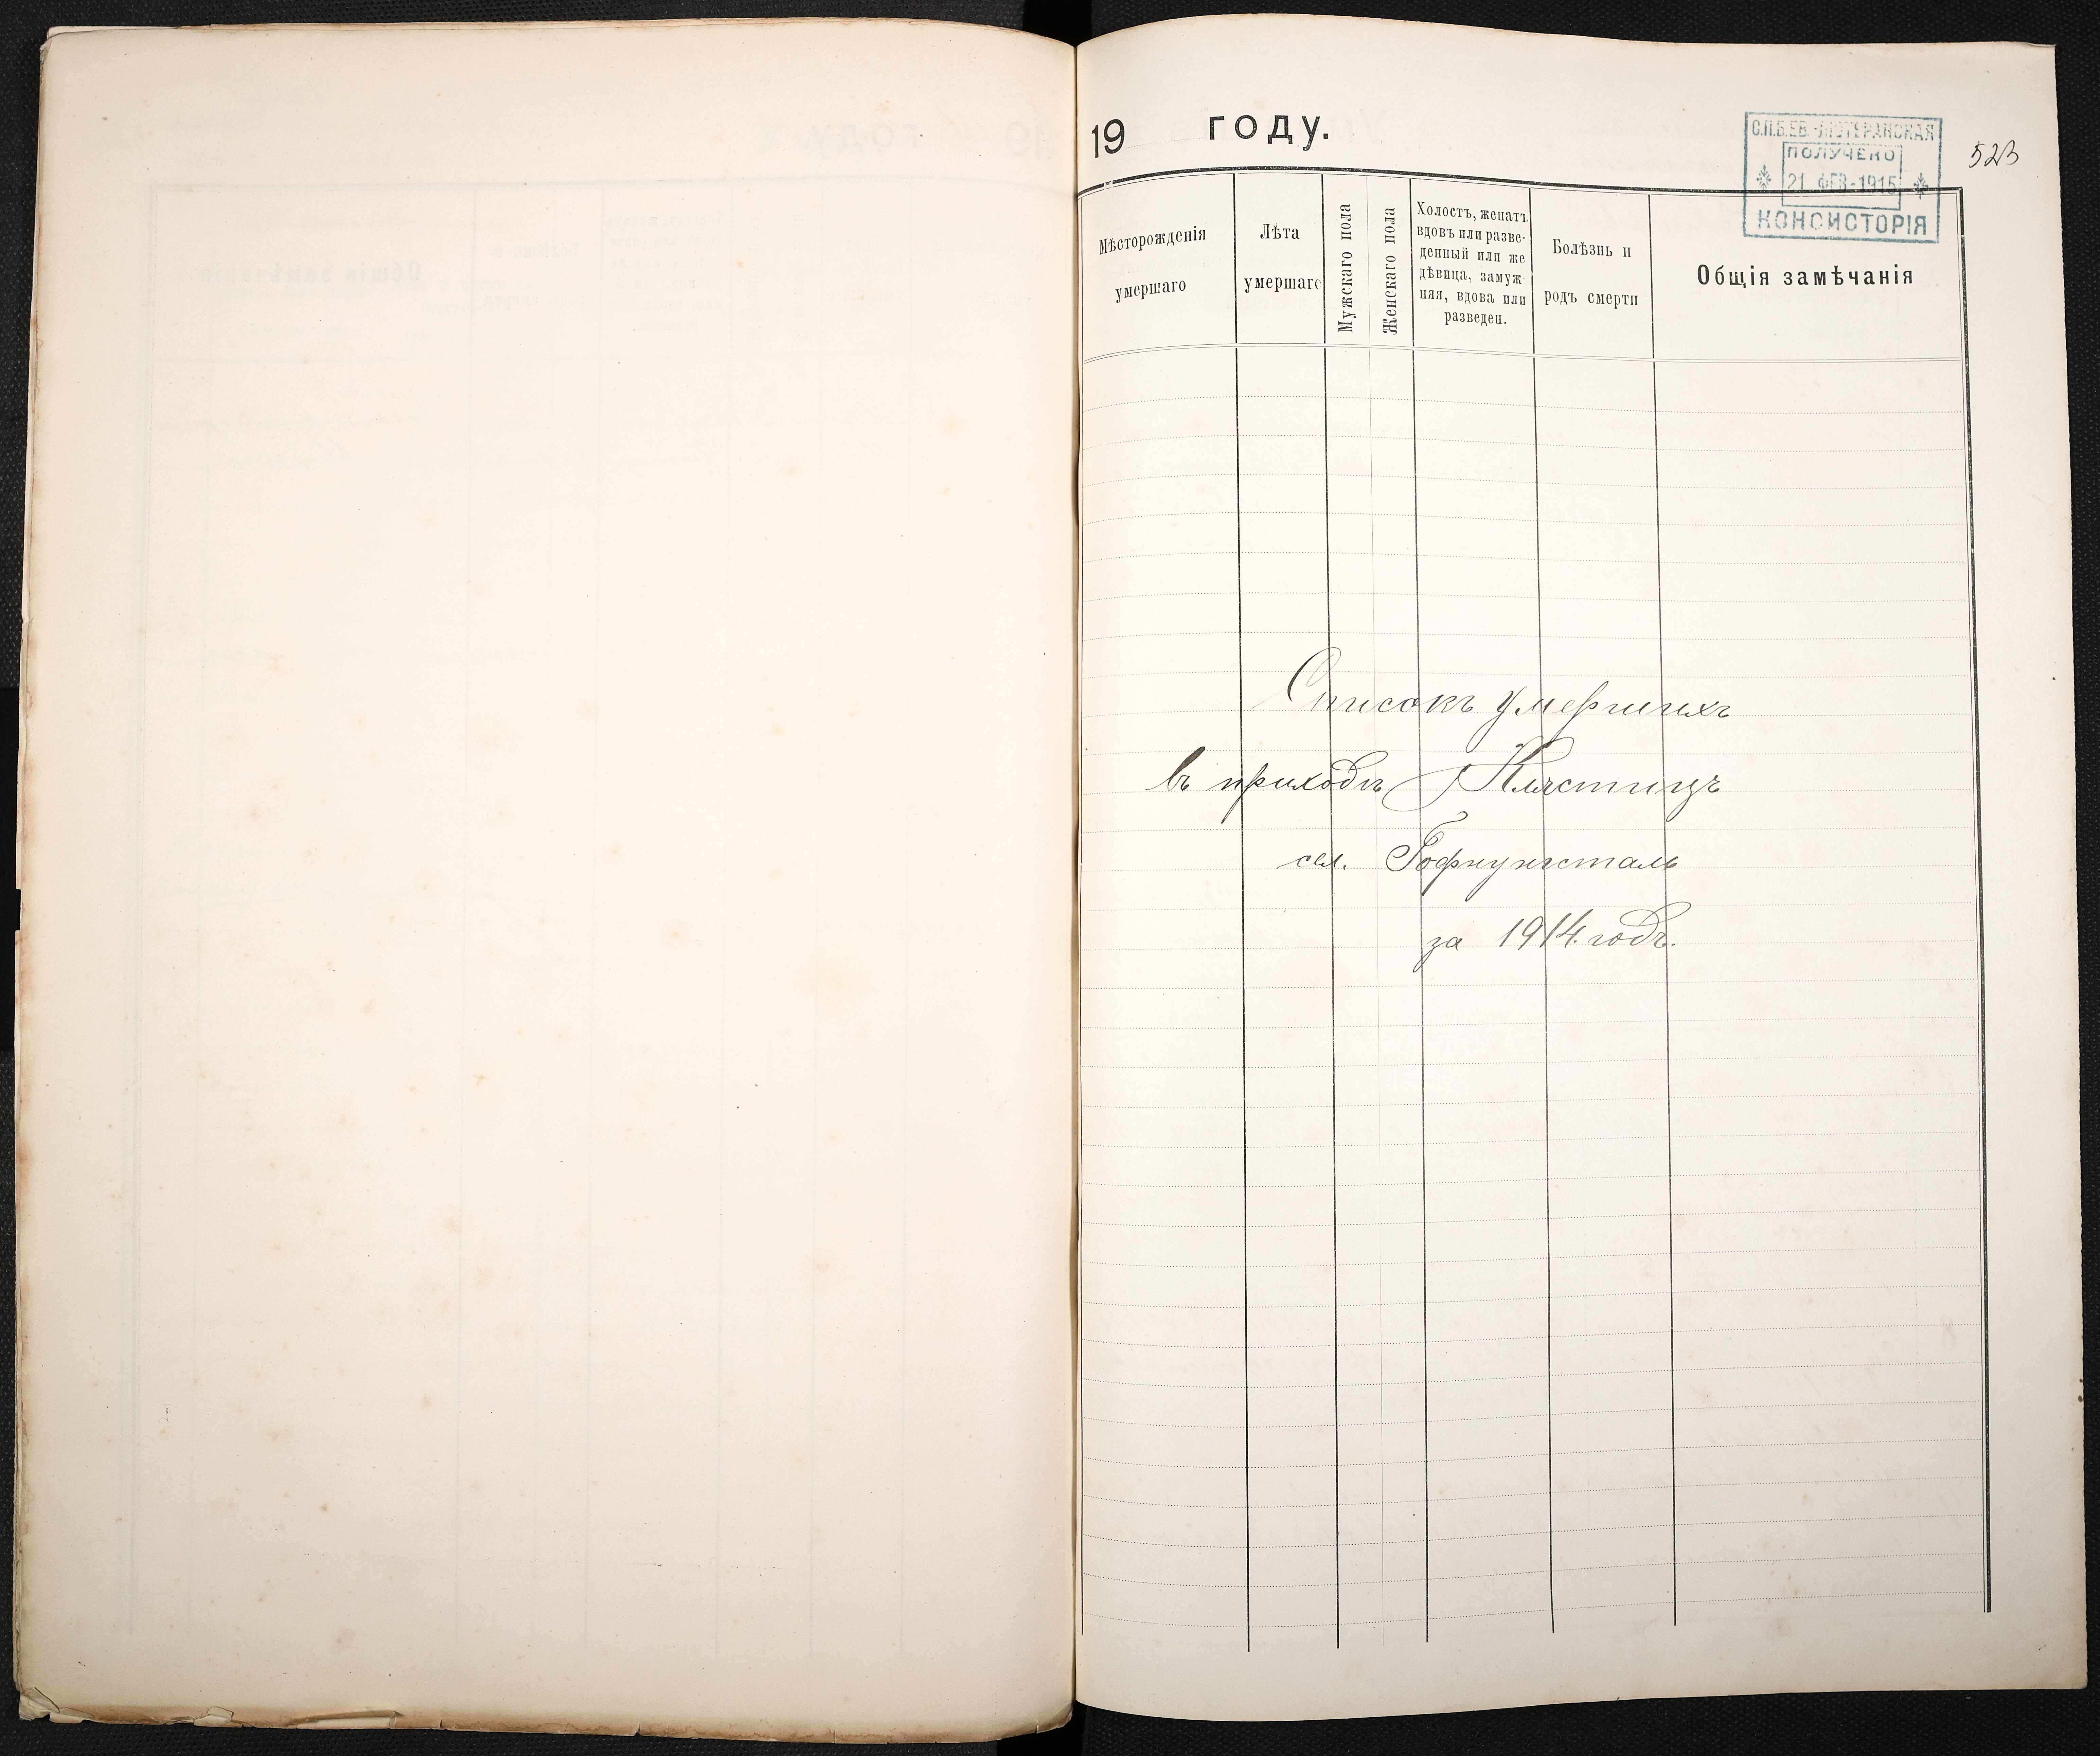 19 году.
С.П.Б.ЕВ.-ЛЮТЕРАНСКАЯ
ПОЛУЧЕНО
21 ФЕВ-1915
КОНСИСТОРІЯ
523
Мѣсторожденія
умершаго
Лѣта
умершаго
Мужскаго пола
Женскаго пола
Холостъ, женатъ
вдовъ или разве-
денный или же
дѣвица, замуж-
няя, вдова или
разведен.
Болѣзнь и
родъ смерти
Общія замѣчанія
Списокъ умершихъ
въ приходѣ Клястицъ
сел. Гофнунгсталь
за 1914 годъ.